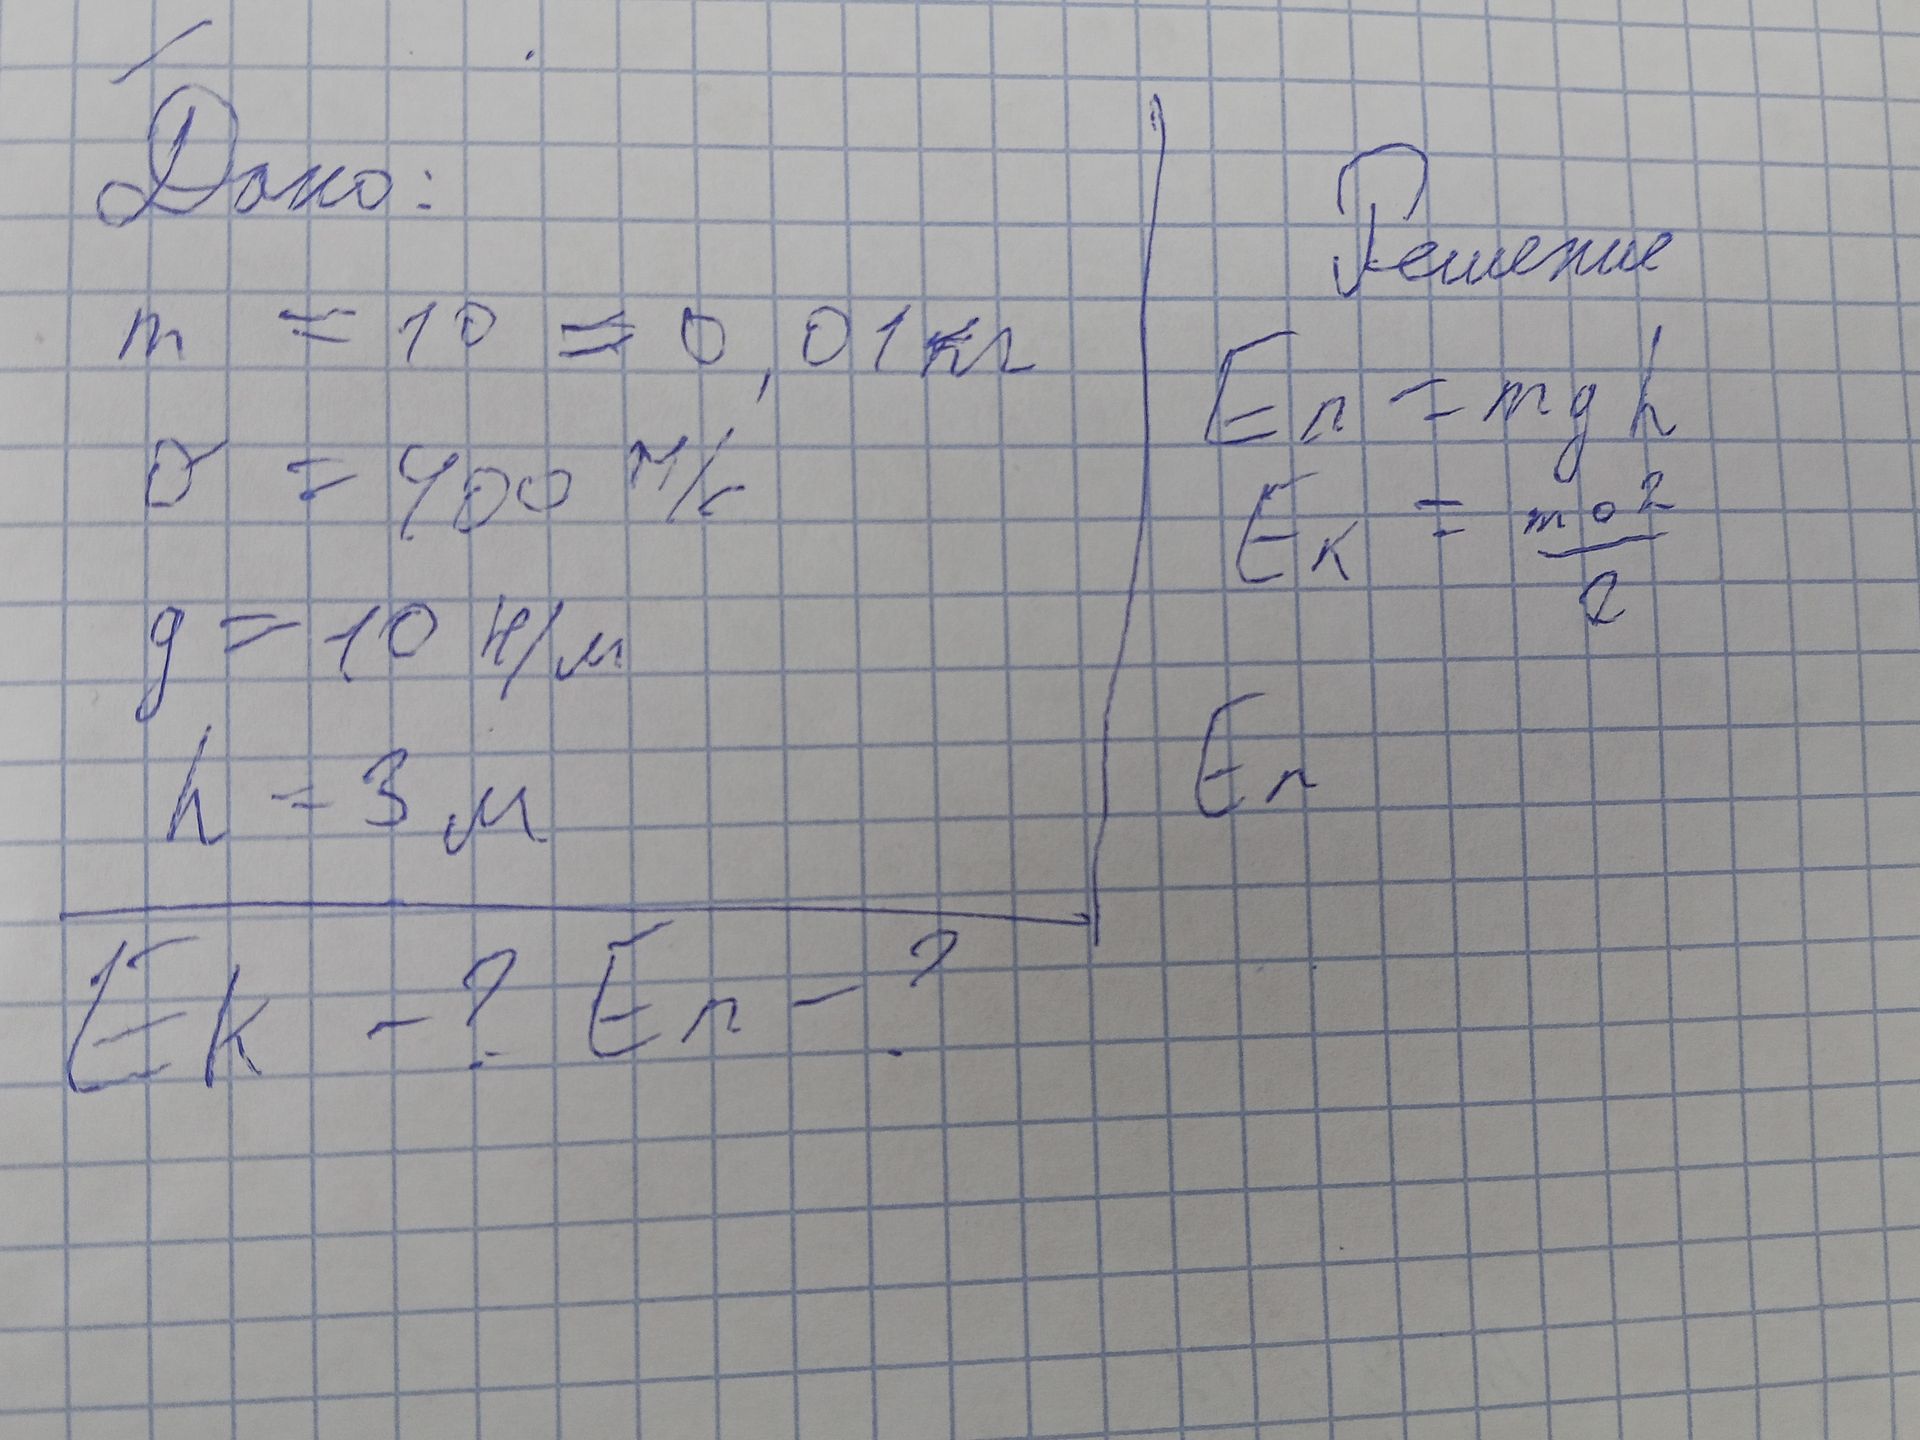 Дано:
m = 10 = 0,01кг
υ = 400 м/с
g = 10 Н/м
h = 3 м
Eк - ? Eп - ?
Решение
Eп = mgh
Eк = mυ²/2
Eп